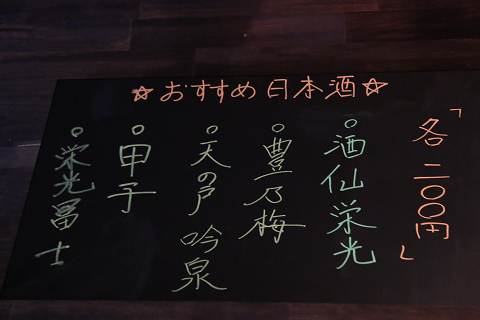 ☆おすすめ日本酒☆
「各二〇〇円」
○酒仙栄光
○豊乃梅
○天の戸 吟泉
○甲子
○栄光冨士